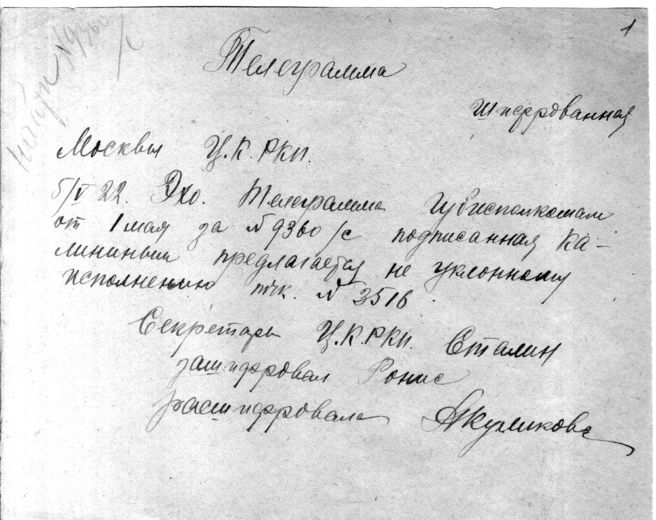 1
найти №9360/с
Телеграмма
шифрованная
Москвы Ц.К.РКП.
5/V 22. Эхо. Телеграмма губисполкомам
от 1 мая за №9360/с подписанная Ка-
лининым предлагается не уклонному
исполнению тчк. № 3516
Секретарь Ц.К.РКП. Сталин
зашифровал Ронис
расшифровала АКуликова